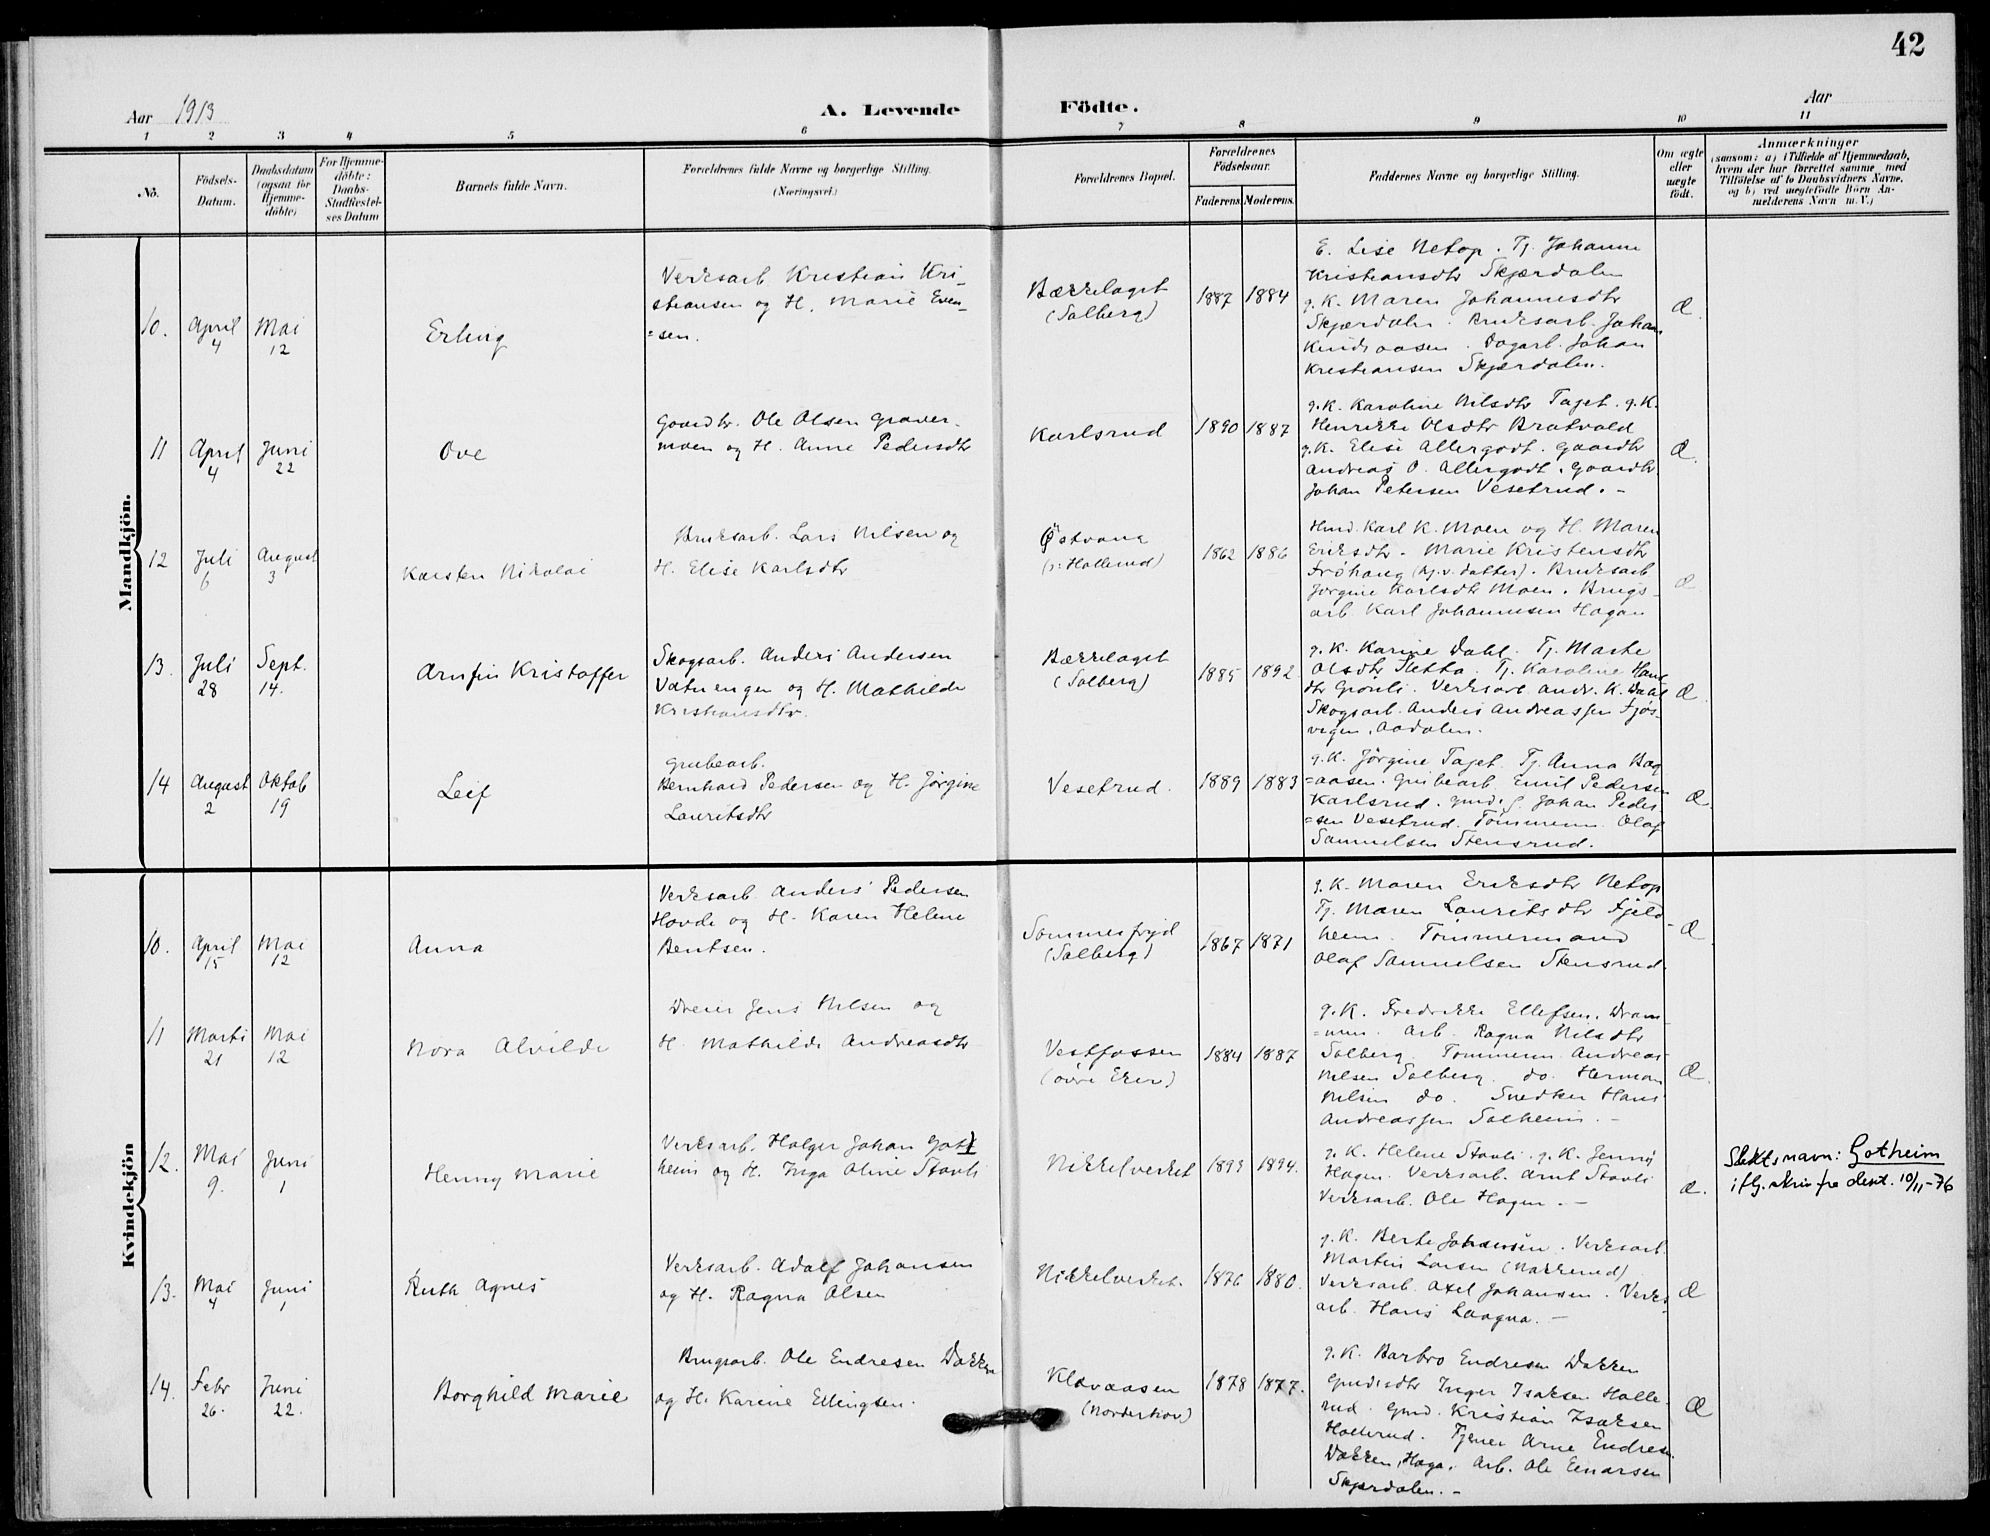 42
Aar 1913
A. Levende Födte.
Aar
1 2 3 4 5 6 7 8 9 10 11
No.
Födsels-Datum.
Daabsdatum (ogsaa for Hjemme-döbte)
For Hjemme-döbte: Daabs-Stadfæstel-ses Datum
Barnets fulde Navn.
Forældrenes fulde Navne og borgerlige Stilling. (Næringsvei.)
Forældrenes Bopæl.
Forældrenes Födselsaar.
Faderens Moderens.
Faddernes Navne og borgerlige Stilling.
Om ægte eller uægte födt.
Anmærkninger
(saasom: a) i Tilfælde af Hjemmedaab,
hvem der har forrettet samme, med
Tilföielse af to Daabsvidners Navne.
og b) ved uægtefödte Börn An-
melderens Navn m. V.)
Mandkjön.
10. April 4 Mai 12 Erling
Verksarb. Kristian Kri-
stiansen og H. Marie Even-
=sen.
Bækkelaget
(Solberg)
1887 1884
E. Lise Netop. Tj. Johanne
Kristiansdtr Skjærdalen
g. K. Maren Johannesdtr
Skjærdalen. Bruksarb. Johan
Knudsaasen. Dagarb. Johan
Kristiansen Skjærdalen.
Æ.
11 April 4 Juni 22 Ove
Gaardbr. Ole Olsen Graver-
moen og H. Anne Pedersdtr
Karlsrud
1890 1887
g. K. Karoline Nilsdtr Taget. g. K.
Henrikke Olsdtr Bratvold
g. K. Elise Allergodt. Gaardbr
Andreas O. Allergodt. Gaardbr
Johan Petersen Vesetrud. -
Æ.
12 Juli 6 August 3 Karsten Nikolai
Bruksarb. Lars Nilsen og
H. Elise Karlsdtr
Østvang
(v: Hollerud)
1862 1886
Husd. Karl K. Moen og H. Maren
Eriksdtr. Marie Kristensdtr
Frøhaug (hj.v. datter). Bruksarb
Jørgine Karlsdtr Moen. Brugs-
arb. Karl Johannesen Hagan
Æ
13. Juli 28 Sept. 14. Arnfin Kristoffer
Skogsarb. Anders Andersen
Vatnengen og H. Mathilde
Kristiansdtr.
Bækkelaget
(Solberg)
1885 1892
g. K. Karine Dahl. Tj. Marte
Olsdtr Sletta. Tj. Karoline Hans
dtr Grønli. Verksarb. Andr. K. Dahl
Skogsarb. Anders Andreassen Fjøs-
vegen, Aadalen.
Æ.
14 August 2 Oktob 19 Leif
Grubearb.
Bernhard Pedersen og H. Jørgine
Lauritsdtr
Vesetrud.
1889 1883
g. K. Jørgine Taget. Tj. Anna Hag
=aasen. Grubearb. Emil Pedersen
Karlsrud. Johan Peder
=sen Vesetrud. Tømmerm. Olaf
Samuelsen Stensrud.
Æ.
Kvindekjön
10. April 15 Mai 12 Anna
Verksarb. Anders Pedersen
Hovde og H. Karen Helene
Bentsen.
Sommerfryd
(Solberg)
1867 1871
g. K. Maren Eriksdtr Netop
Tj. Maren Lauritsdtr Fjeld-
heim. Tømmermand
Olaf Samuelsen Stensrud.
Æ.
11 Marts 21 Mai 12 Nora Alvilde
Dreier Jens Nilsen og
H. Mathilde Andreasdtr
Vestfossen
(øvre Eker)
1884 1887
g. K. Fredrikke Ellefsen. Dram-
=men. Arb. Ragna Nilsdtr
Solberg. Tømmerm. Andreas
Nilsen Solberg. do. Herman
Nilsen do. Snedker Hans
Andreassen Solheim. -
Æ.
12. Mai 9. Juni 1 Henny Marie
Verksarb. Holger Johan Got
heim og H. Inga Oline Stavli
Nikkelverket
1893 1894.
g. K. Helene Stavli. g. K. Jenny
Hagen. Verksarb. Arnt Stavli
Verksarb. Ole Hagen. -
Æ.
Slektsnavn: Gotheim
iflg. skriv fra dept. 10/11-76
13. Mai 4 Juni 1 Ruth Agnes
Verksarb. Adolf Johansen
og H. Ragna Olsen
Nikkelverket.
1876 1880.
g. K. Berte Johansen. Verksarb.
Martin Larsen (Nakkerud)
Verksarb. Axel Johansen. Verks-
arb. Hans Laagna. -
Æ
14. Febr 26. Juni 22. Borghild Marie
Brugsarb. Ole Endresen Dokken
og H. Karine Ellingsen.
Klovaasen
(Norderhov)
1878 1877.
g. K. Barbro Endresen Dokken
Gmdsdtr Inger Isaksen Holle-
rud. Gmd. Kristian Isaksen
Hollerud. Tjener Arne Endresen
Dokken, Haga. Arb. Ole Einarsen
Skjærdalen. -
Æ